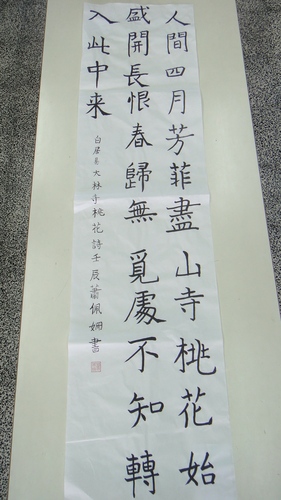 人間四月芳菲盡山寺桃花始
盛開長恨春歸無覓處不知轉
入此中来
白居易大林寺桃花詩壬辰蕭佩姍書